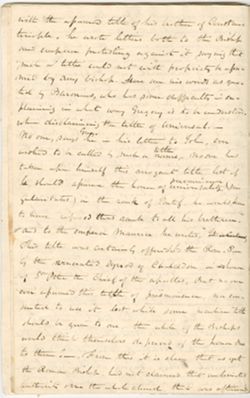 with the assumed title of his brother of Constan-
tinople, he wrote letters both to the Bishop
and emperor protesting against it saying that
such a title could not with propriety be assu-
med by any bishop. Here are his words as quo-
ted by Baronius, who has some difficulty in ex-
plaining in what way Gregory is to be understood,
when disclaiming the title of Universal. -
No one, says Greg. in his letter to John, ever
wished to be called by such a name, No one has
taken upon himself this arrogant title, lest if
he should assume the honor of
in the rank of Pontif. he would seem
to have refused this same to all his brethren.
And to the emperor Maurice he writes,
This title was certainly offered the Rom. 
by the venerated Synod of Chalcedon in honor
of St Peter the Chief of the apostles, But no one
ever assumed this title of nor con-
sented to use it lest while some
should be given to one the whole of the Bishops
would think themselves deprived of the honor due
to them. From this it is clear that as yet
the Roman Bishop had not claimed that unlimited
authority over the whole church that was afterwards